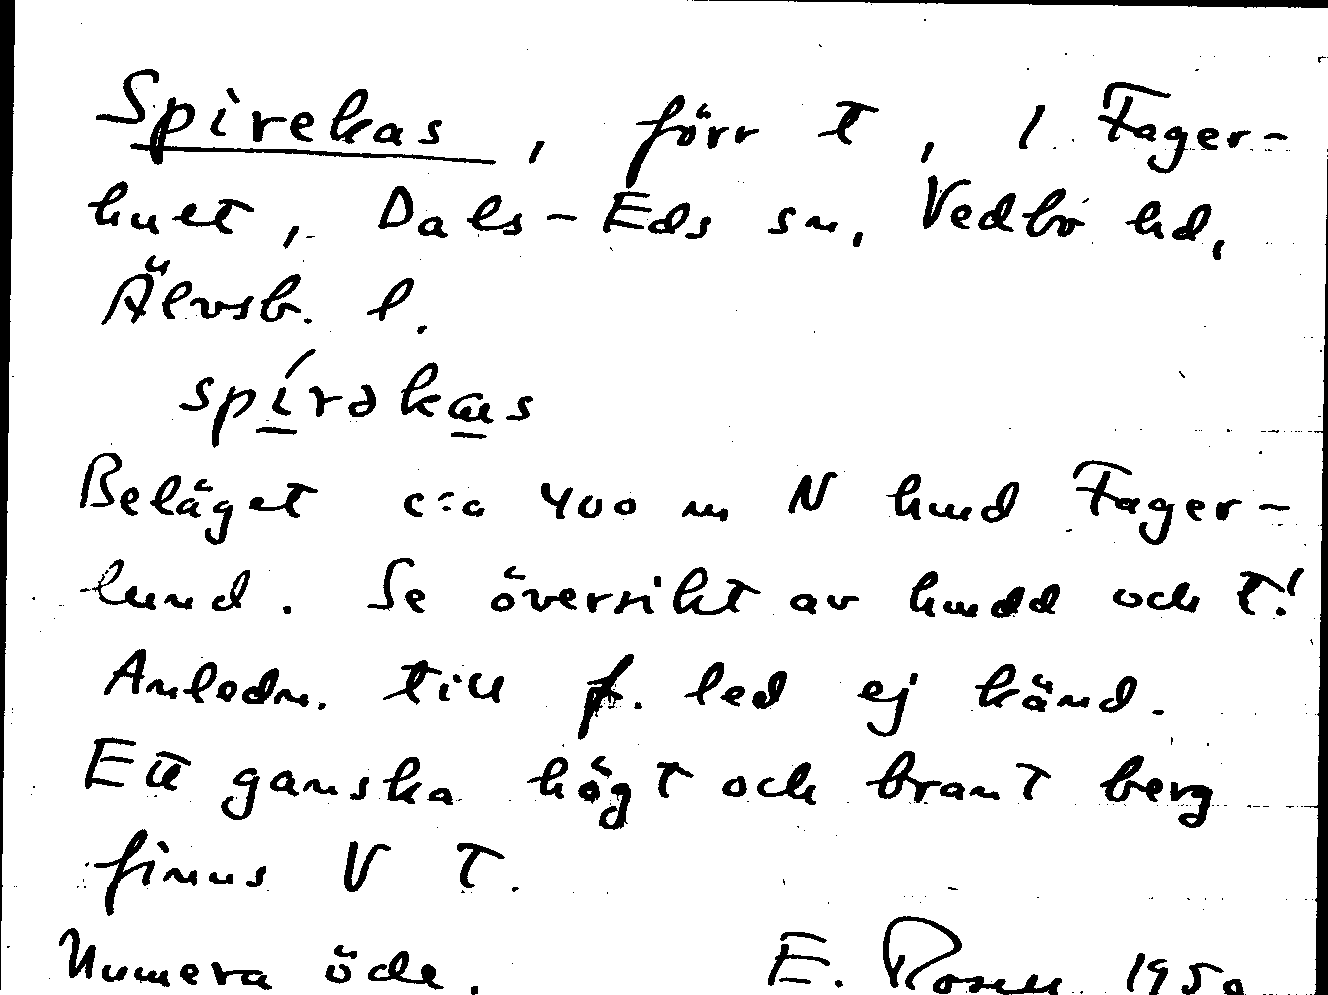 Spirekas, förr t, 1 Fager-
hult, Dals-Eds sn, Vedbo hd,
Älvsb. l.
spírəkas
Beläget c:a 400 m N hmd Fager-
lund. Se översikt av hmdd och t!
Anledn. till f. led ej känd.
Ett ganska högt och brant berg
finns V t.
Numera öde. E. Rosell 1950